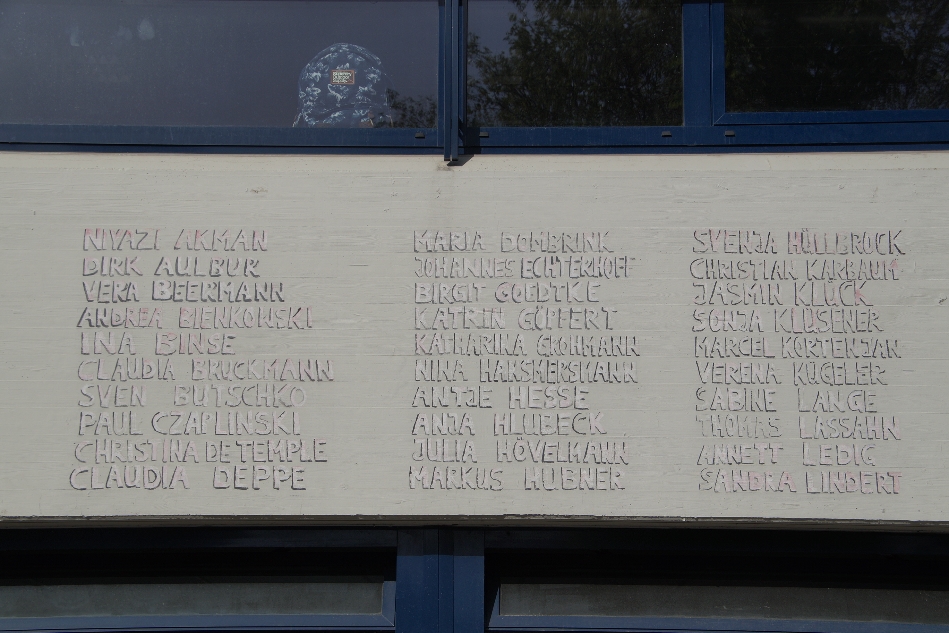 NIYAZI AKMAN
DIRK AULBUR
VERA BEERMANN
ANDREA BIENKOWSKI
INA BINSE
CLAUDIA BRUCKMANN
SVEN BUTSCHKO
PAUL CZAPLINSKI
CHRISTINA DE TEMPLE
CLAUDIA DEPPE
MARIA DOMBRINK
JOHANNES ECHTERHOFF
BIRGIT GOEDTKE
KATRIN GÖPFERT
KATHARINA GROHMANN
NINA HAKSMERSMANN
ANTJE HESSE
ANJA HLUBECK
JULIA HÖVELMANN
MARKUS HUBNER
SVENJA HÜLLBROCK
CHRISTIAN KARBAUM
JASMIN KLÜCK
SONJA KLÜSENER
MARCEL KORTENJAN
VERENA KÜGELER
SABINE LANGE
THOMAS LASSAHN
ANNETT LEDIG
SANDRA LINDERT